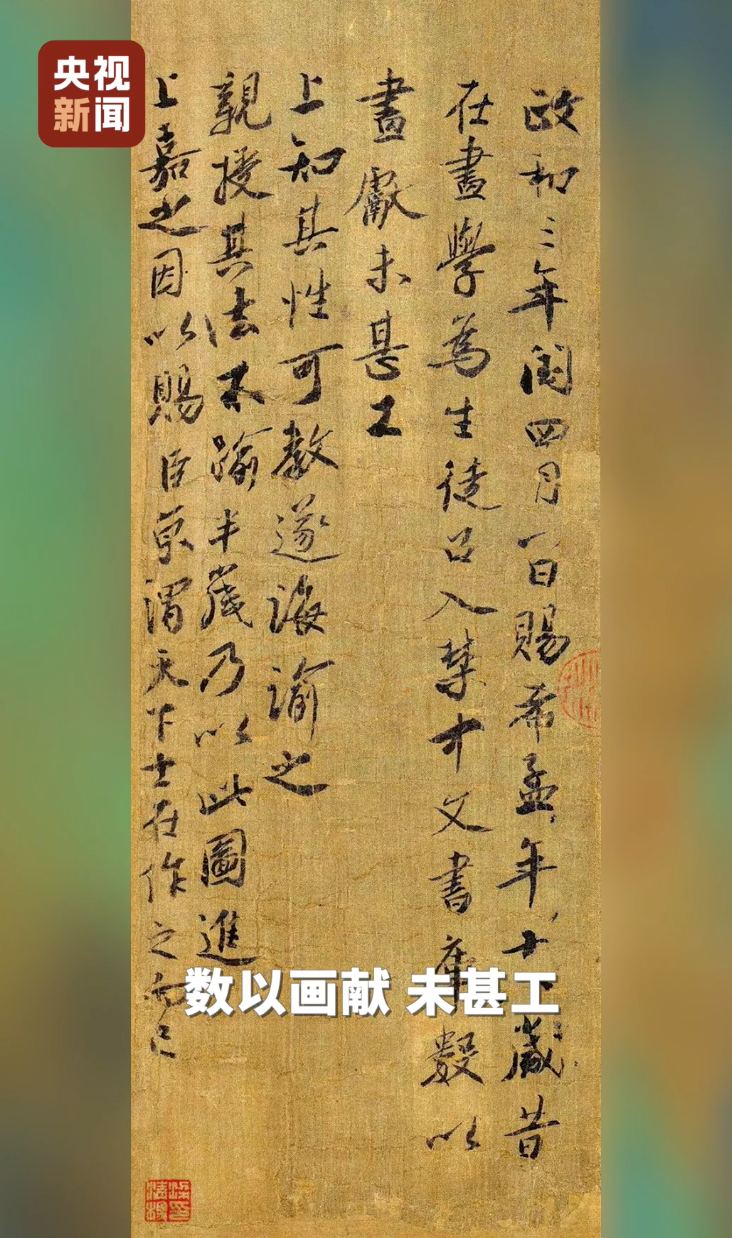 央视
新闻
政和三年閏四月一日賜希孟年十八歲昔
在畫學為生徒召入禁中文書庫數以
畫獻未甚工
上知其性可教遂誨諭之
親授其法不踰半歲乃以此圖進
上嘉之因以賜臣京謂天下士在作之而已
数以画献 未甚工